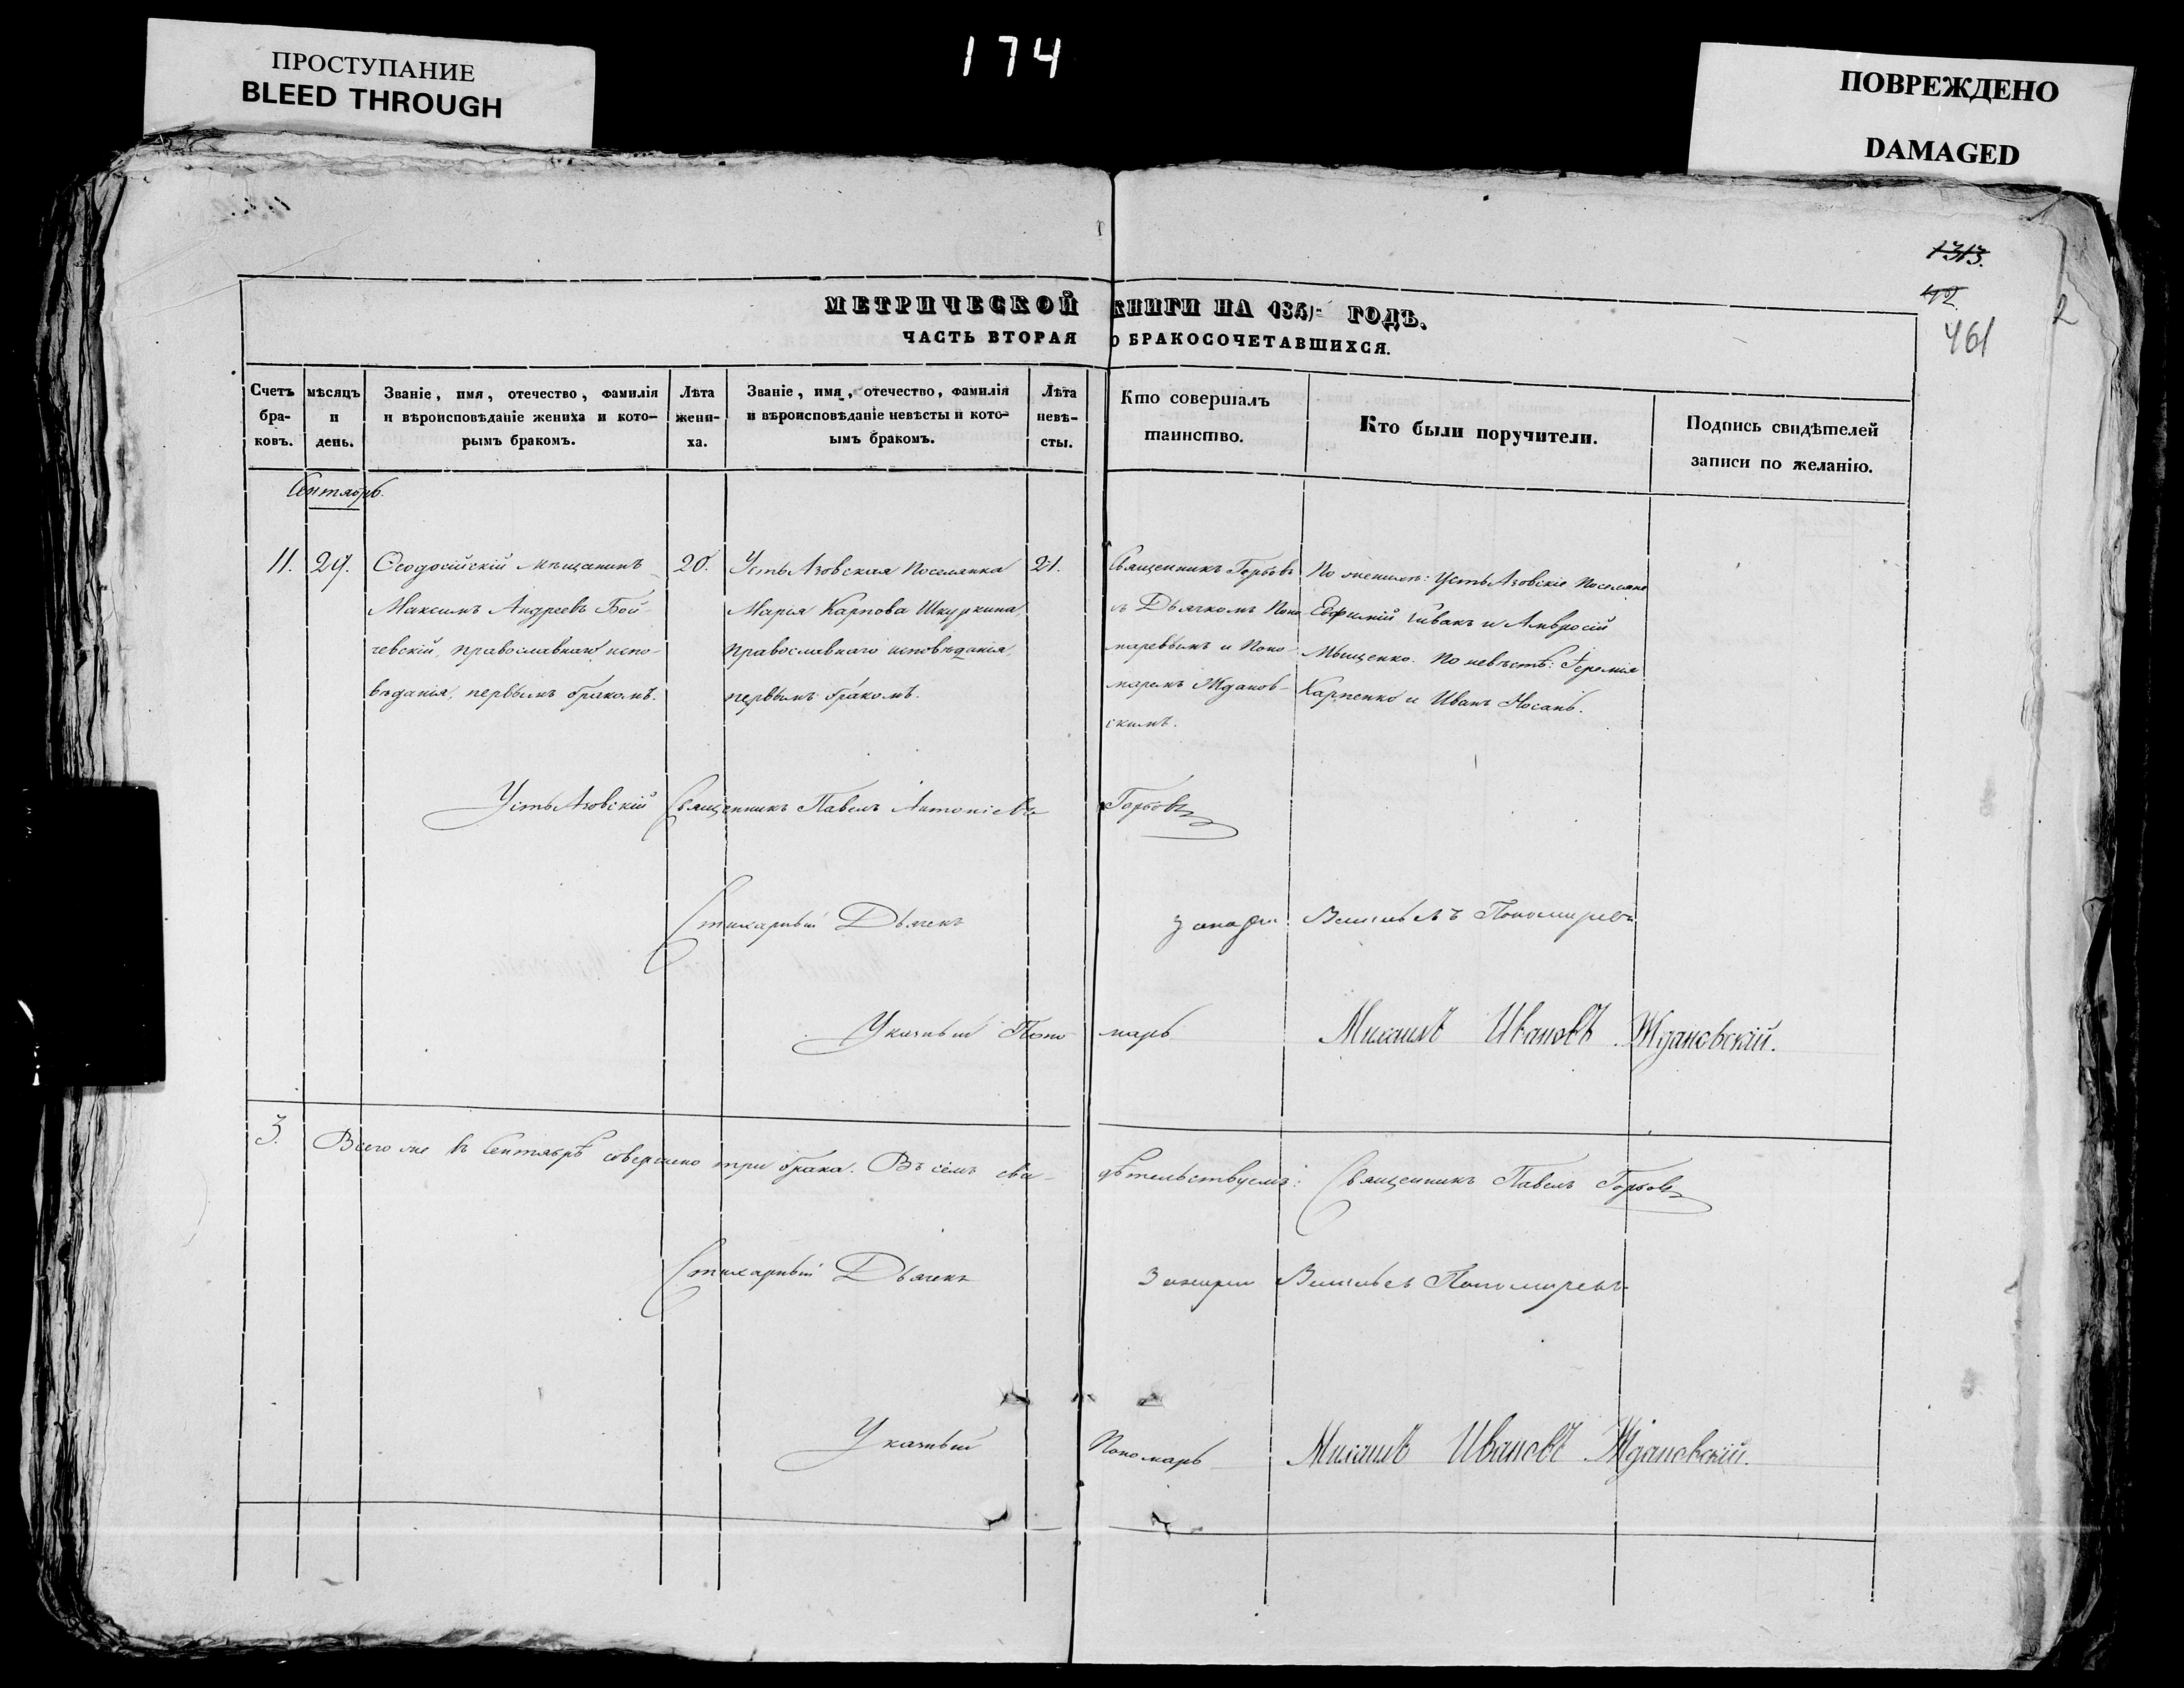 ПРОСТУПАНИЕ
BLEED THROUGH
174
ПОВРЕЖДЕНО
DAMAGED
1313.
461
2
МЕТРИЧЕСКОЙ КНИГИ НА 1851 ГОДЪ.
ЧАСТЬ ВТОРАЯ О БРАКОСОЧЕТАВШИХСЯ.
Счетъ бра- ковъ.
мѣсяцъ и день.
Званіе, имя, отечество, фамилія
и вѣроисповѣданіе жениха и кото-
рымъ бракомъ.
Лѣта жени- ха.
Званіе, имя, отечество, фамилія
и вѣроисповѣданіе невѣсты и кото-
ымъ бракомъ.
Лѣта невѣ- сты.
Кто совершалъ
таинство.
Кто были поручители.
Подпись свидѣтелей
записи по желанію.
Сентябрь.
11. 29.
Ѳеодосійскій мѣщанинъ
Максимъ Андреевъ Бой-
чевскій, православнаго испо-
вѣданія, первымъ бракомъ.
20.
Усть Азовская поселянка
Марія Карпова Шкуркина,
православнаго исповѣданія,
первымъ бракомъ.
21.
Священникъ Горбовъ
съ Дьячкомъ Поно-
маревымъ и Поно-
маремъ Ждановс-
скимъ.
По женихѣ: Усть Азовскіе поселяне
Евфимій Чивакъ и Амвросій
Мищенко. По невѣстѣ: Іеремія
Карпенко и Иванъ Носань.
Усть Азовскій Священникъ Павелъ Антоніевъ Горбовъ
Стихарный Дьячекъ Захарій Васильевъ Пономаревъ
Указный Пономарь Михаилъ Ивановъ Ждановскій.
3. Всего же въ Сентябрѣ совершено три брака. Въ семъ сви-
дѣтельствуемъ: Священникъ Павелъ Горбовъ
Стихарный Дьячекъ Захарій Васильевъ Пономаревъ
Указный Пономарь Михаилъ Ивановъ Ждановскій.